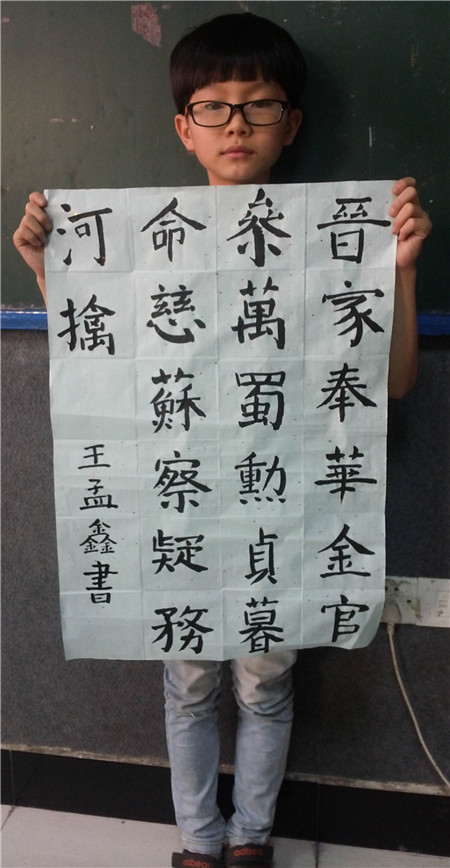 晉家奉華金官
萬蜀勳貞暮
命慈蘇察疑務
河擒
王孟鑫書